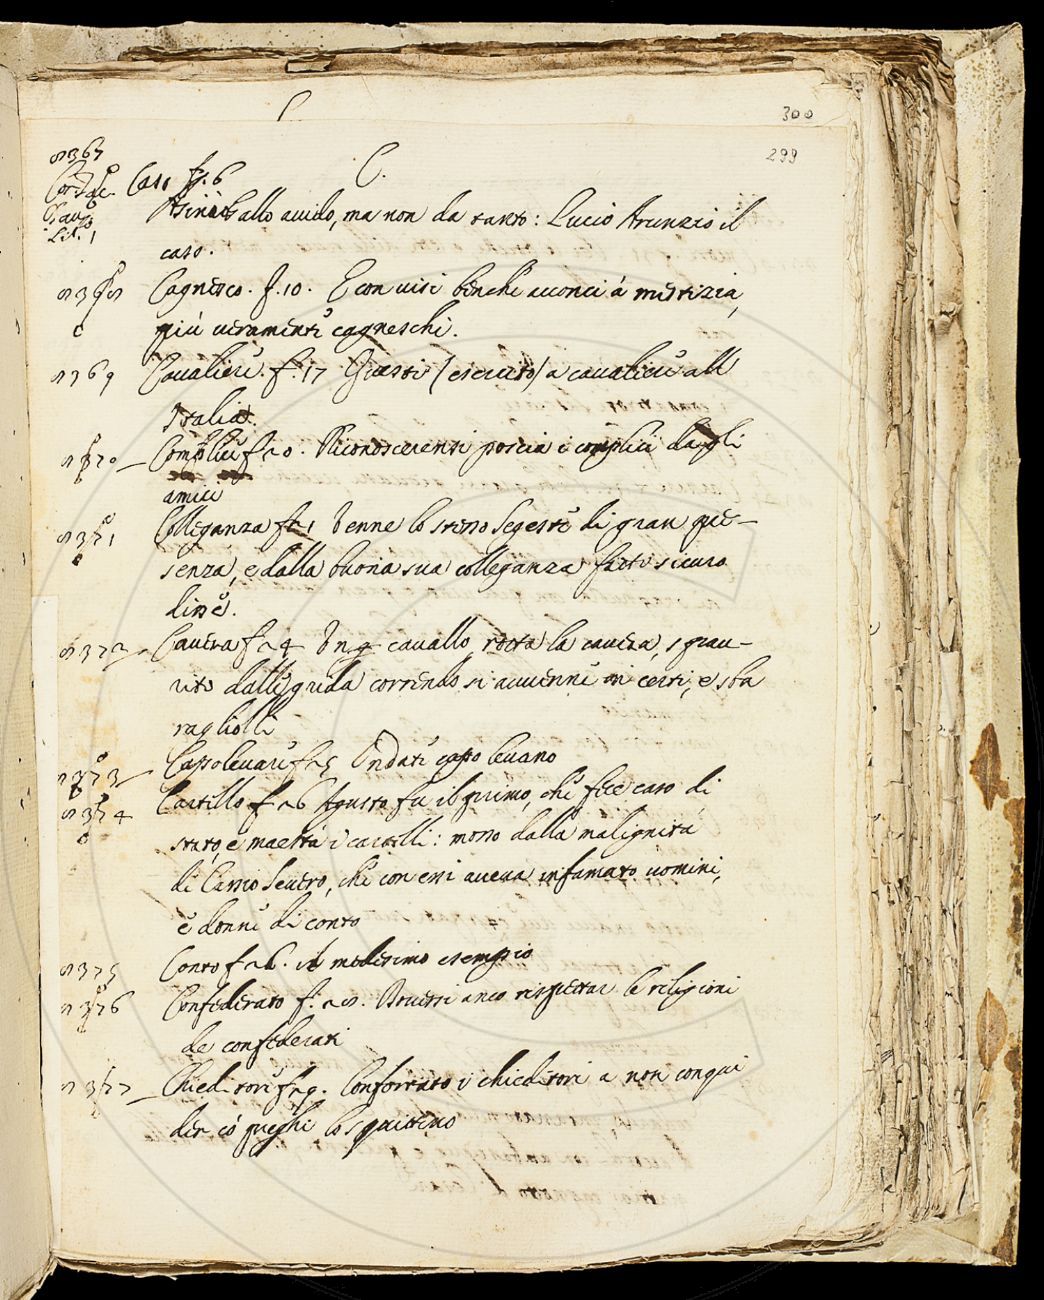 C
300
299
8367
C.
Caso f. 6
Asinio Gallo avido, ma non da tanto: Lucio Arunzio il
caso.
8368 Cagnesco. f. 10. E con visi benche acconci á mestizia,
C piú veramente cagneschi.
8369 Cavaliere. f. 17 Questi (esercito) a cavaliere all
Italia.
8370 Complice f. 20. Riconoscerensi poscia i complici dagli
amici
8371 Colleganza f. 21 Venne lo stesso Segeste di gran pre-
senza, e dalla buona sua colleganza fatto sicuro
disse.
8372 Cavezza f. 24 Un cavallo, rotta la cavezza, spau-
rito dalle grida correndo si avvenne in certi, e sba
ragliolli
8373 Capolevare f. 25 Ondati capo levano
8374 Cartello f. 26 Agusto fu il primo, che fece caso di
stato, e maestá i cartelli: mosso dalla malignitá
di Cassio Severo, che con essi aveva infamato uomini,
e donne di conto
8375 Conto f. 26. il medesimo esempio
8376 Confederato f. 28. Doversi anco rispettar le religioni
de confederati
8377 Chieditore f. 29. Confortato i chieditori a non conqui
der có preghi lo squittino